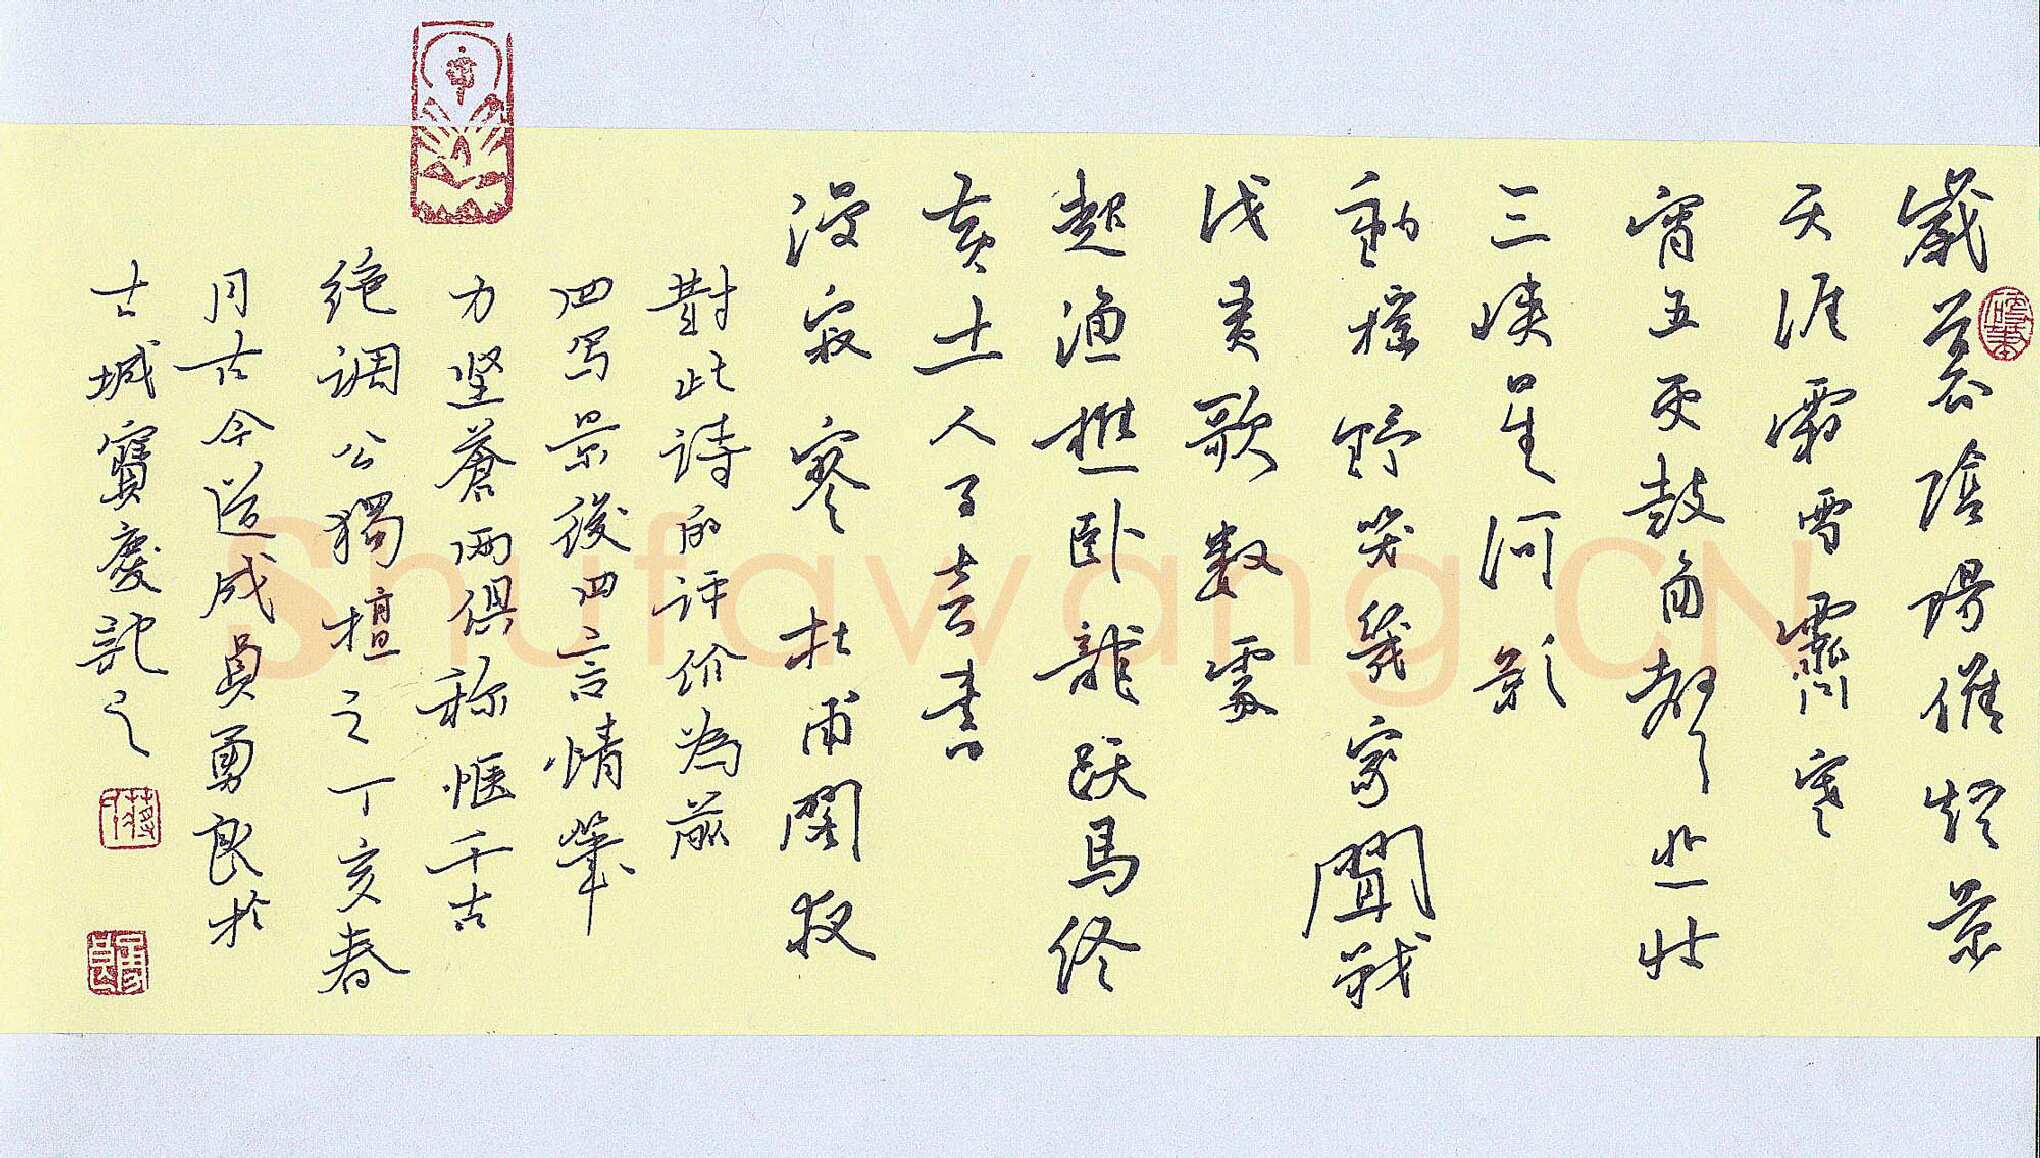 歲暮陰陽催短景
天涯霜雪霽寒
宵五更鼓角聲悲壯
三峽星河影
動摇野哭幾家聞戰
伐夷歌数處
起漁樵卧龍跃馬終
黄土人事音書
漫寂寥 杜甫閣夜
對此詩的评价為前
四写景後四言情筆
力坚蒼兩俱称惬千古
绝調公獨擅之丁亥春
月古今道成員勇良於
古城寶慶記之
Shufawang.CN